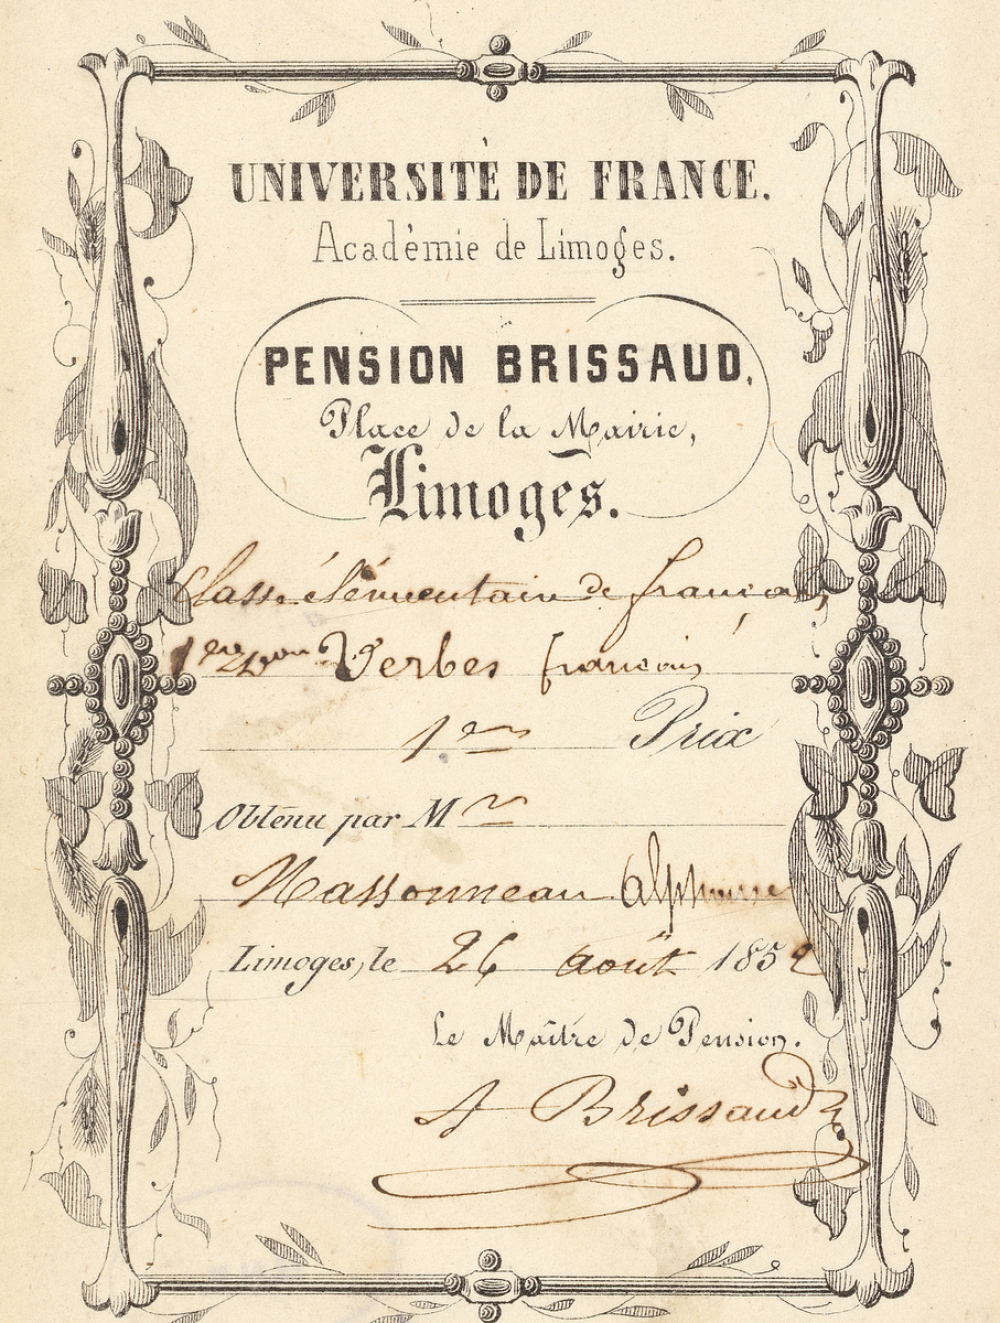 UNIVERSITÉ DE FRANCE.
Académie de Limoges.
PENSION BRISSAUD,
Place de la Mairie,
Limoges.
Classe élémentaire de français,
1ère Verbes français
1er Prix
Obtenu par Mr
Massonneau Alphonse
Limoges, le 26 août 1852
Le Maître de Pension.
A Brissaud